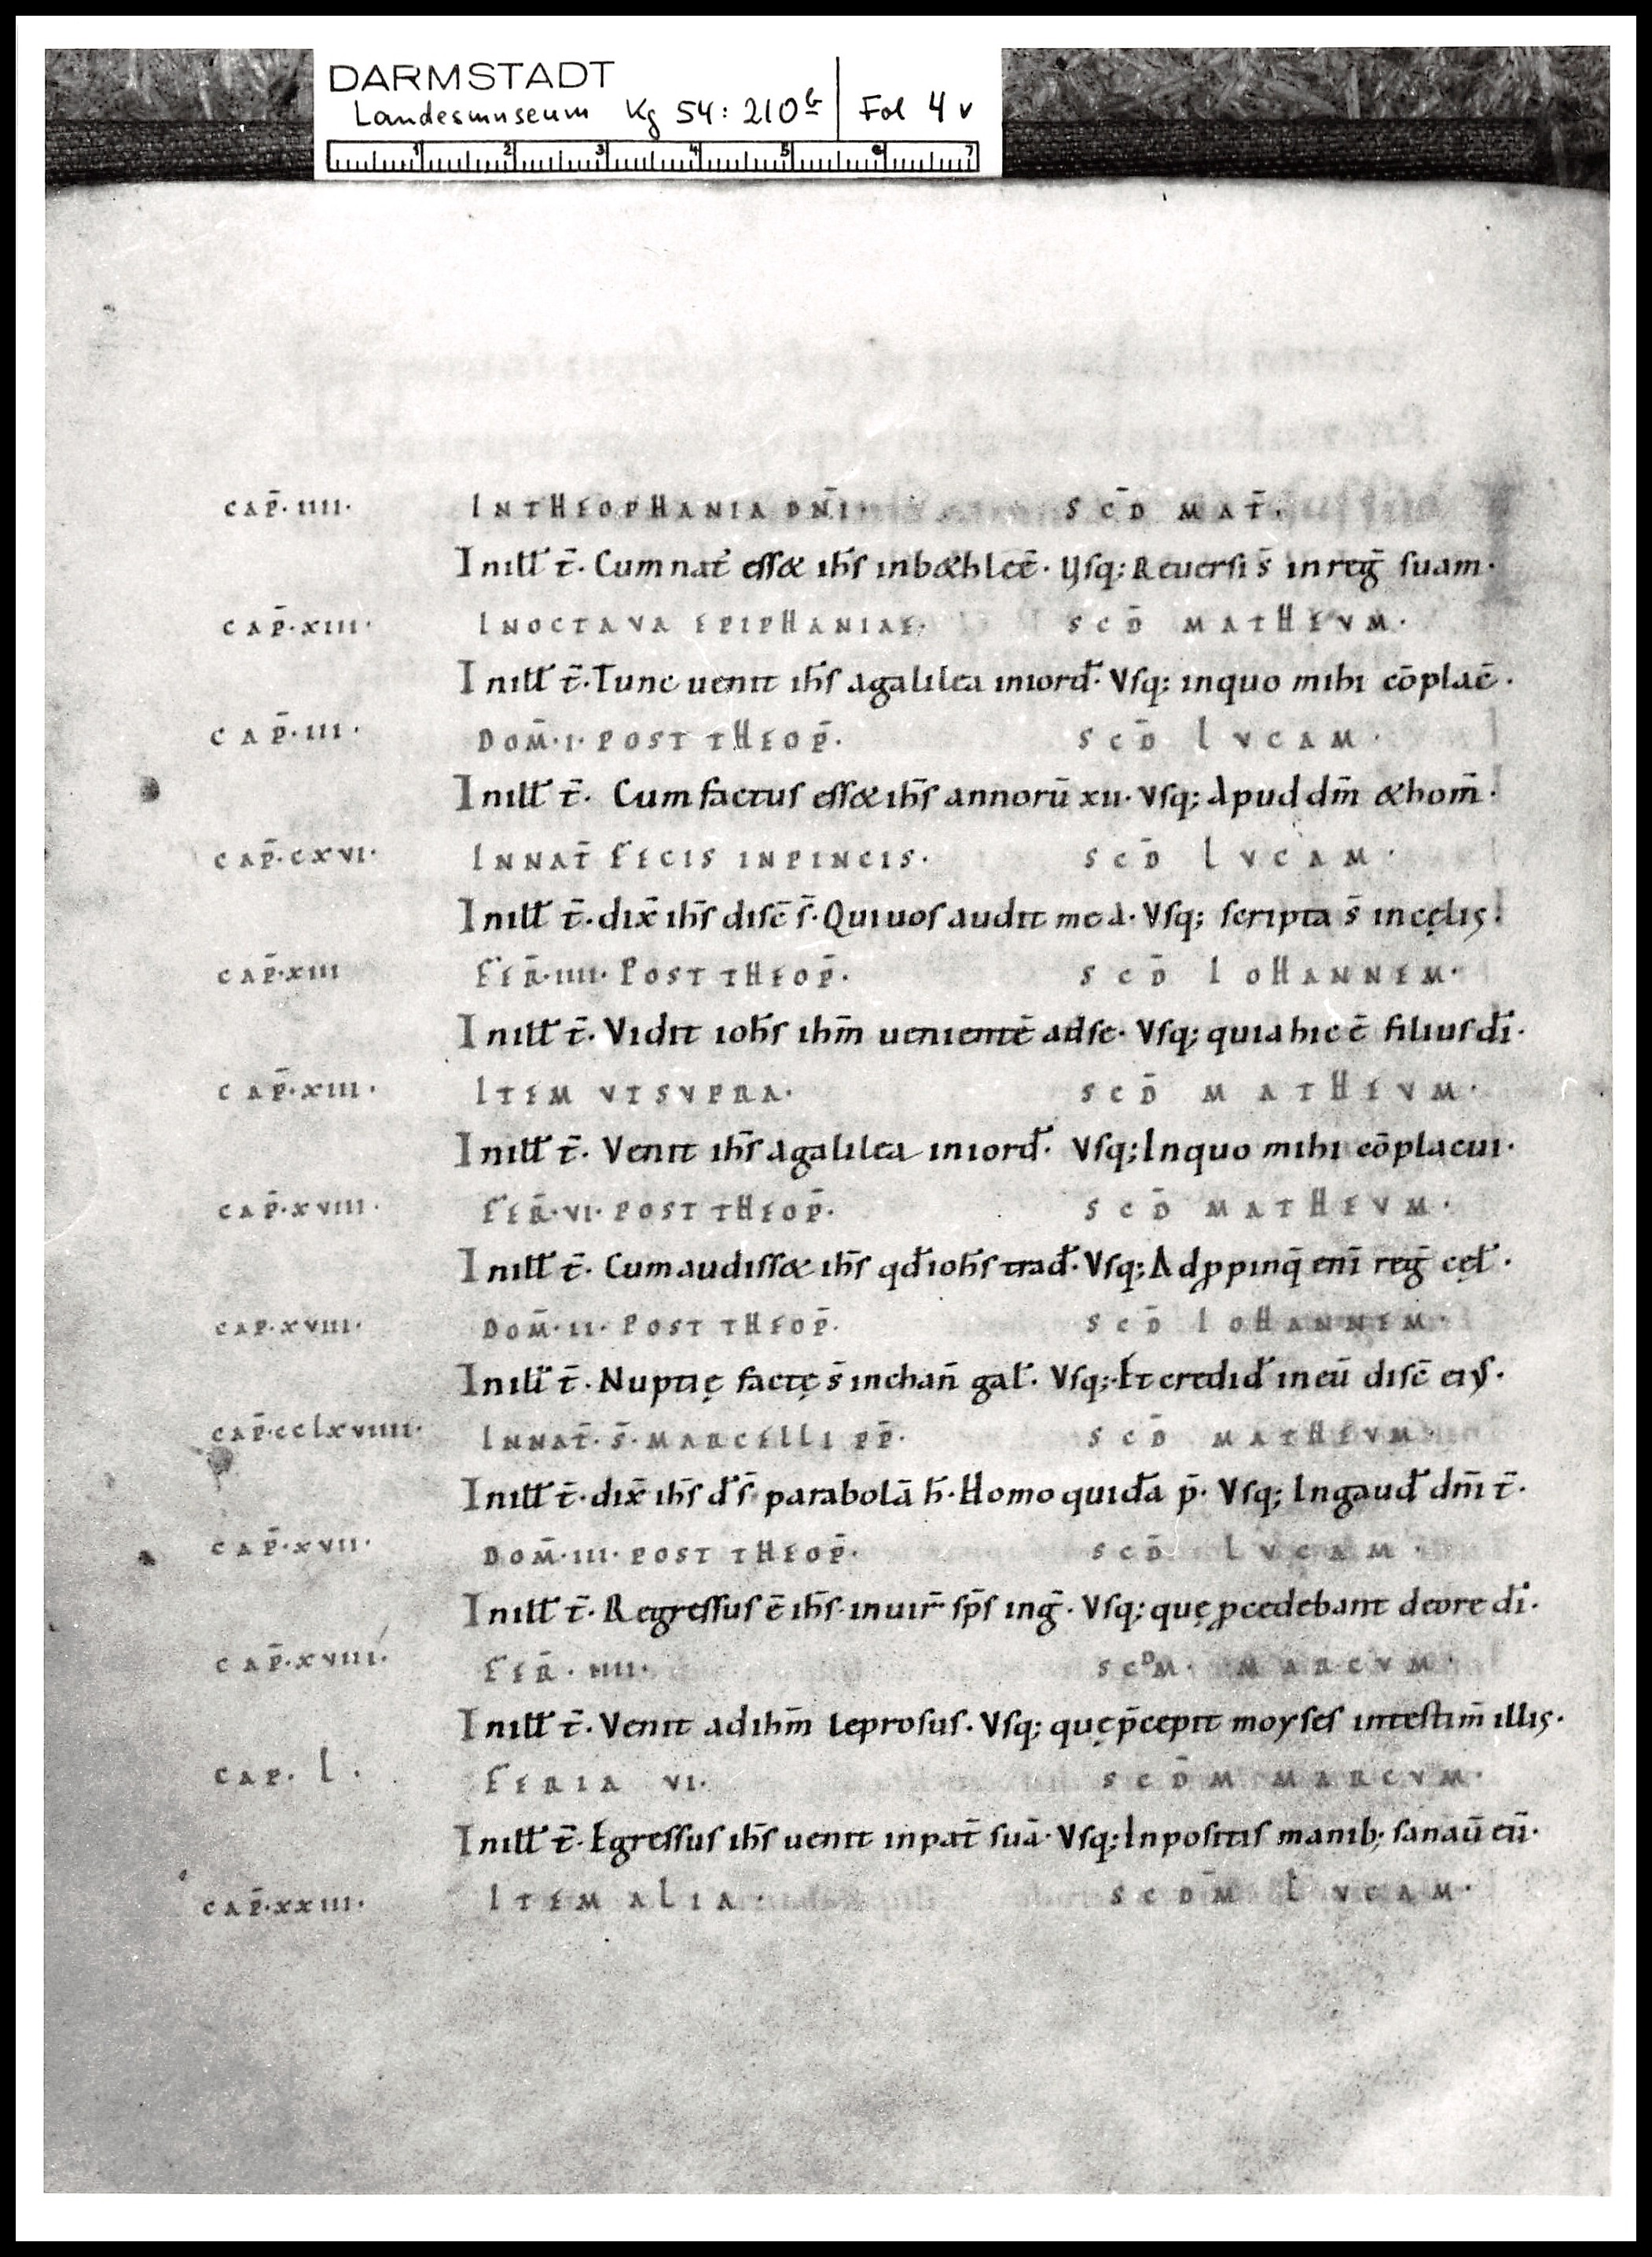 DARMSTADT
Landesmuseum Kg 54: 210b Fol 4v
1 2 3 4 5 6 7
CAP̄·IIII· INTHEOPHANIA DN̄I· SCD̄ MAT̄·
Inill' t̄· Cum nat' ess& ih̄s inb&hleē· Vsq; Reuersi s̄ inreḡ suam·
CAP̄·XIII· INOCTAVA EPIPHANIAE· SCD̄ MATHEVM·
Inill' t̄· Tunc uenit ih̄s agalilea iniord'· Vsq; inquo mihi cōplac̄·
CAP̄·III· DOM̄·I·POST THEOP̄· SCD̄ LVCAM·
Inill' t̄· Cum factus ess& ih̄s annorū xii· Vsq; Apud dm̄ &hom̄·
CAP̄·CXVI· INNAT̄ FECIS INPINCIS· SCD̄ LVCAM·
Inill' t̄· dix̄ ih̄s disc̄ s̄· Qui uos audit me a· Vsq; scripta s̄ incęlis·
CAP̄·XIII FER̄·IIII· POST THEOP̄· SCD̄ IOHANNEM·
Inill' t̄· Vidit ioh̄s ihm̄ uenientē adse· Vsq; quia hic ē filius dī·
CAP̄·XIII· ITEM VTSVPRA· SCD̄ MATHEVM·
Inill' t̄· Venit ih̄s agalilea iniord'· Vsq; Inquo mihi cōplacui·
CAP̄·XVIII· FER̄·VI· POST THEOP̄· SCD̄ MATHEVM·
Inill' t̄· Cum audiss& ih̄s qd' ioh̄s trad'· Vsq; Adꝓpinq̄ enī reḡ cęl'·
CAP·XVIII· DOM̄·II· POST THEOP̄· SCD̄ IOHANNEM·
Inill' t̄· Nuptię factę s̄ inchan̄ gal'· Vsq; Et credid' in eū disc̄ eiꝰ·
CAP̄·CCLXVIIII· INNAT̄·S̄·MARCELLI PP̄· SCD̄ MATHEVM·
Inill' t̄· dix̄ ih̄s d' s̄ parabolā h̄· Homo quidā p̄· Vsq; Ingaud' dn̄i t̄·
CAP̄·XVII· DOM̄·III· POST THEOP̄· SCD̄ LVCAM·
Inill' t̄· Regressus ē ih̄s inuir̄ sp̄s inḡ· Vsq; quę ꝓcedebant deore dī·
CAP̄·XVIII· FER̄·IIII· SCDM· MARCVM·
Inill' t̄· Venit adihm̄ leprosus· Vsq; quę p̄cepit moyses intestim̄ illis·
CAP· L· FERIA VI· SCDM̄ MARCVM·
Inill' t̄· Egressus ih̄s uenit inpat̄ suā· Vsq; Inpositis manib; sanaū eū·
CAP̄·XXIII· ITEM ALIA· SCDM̄ LVCAM·